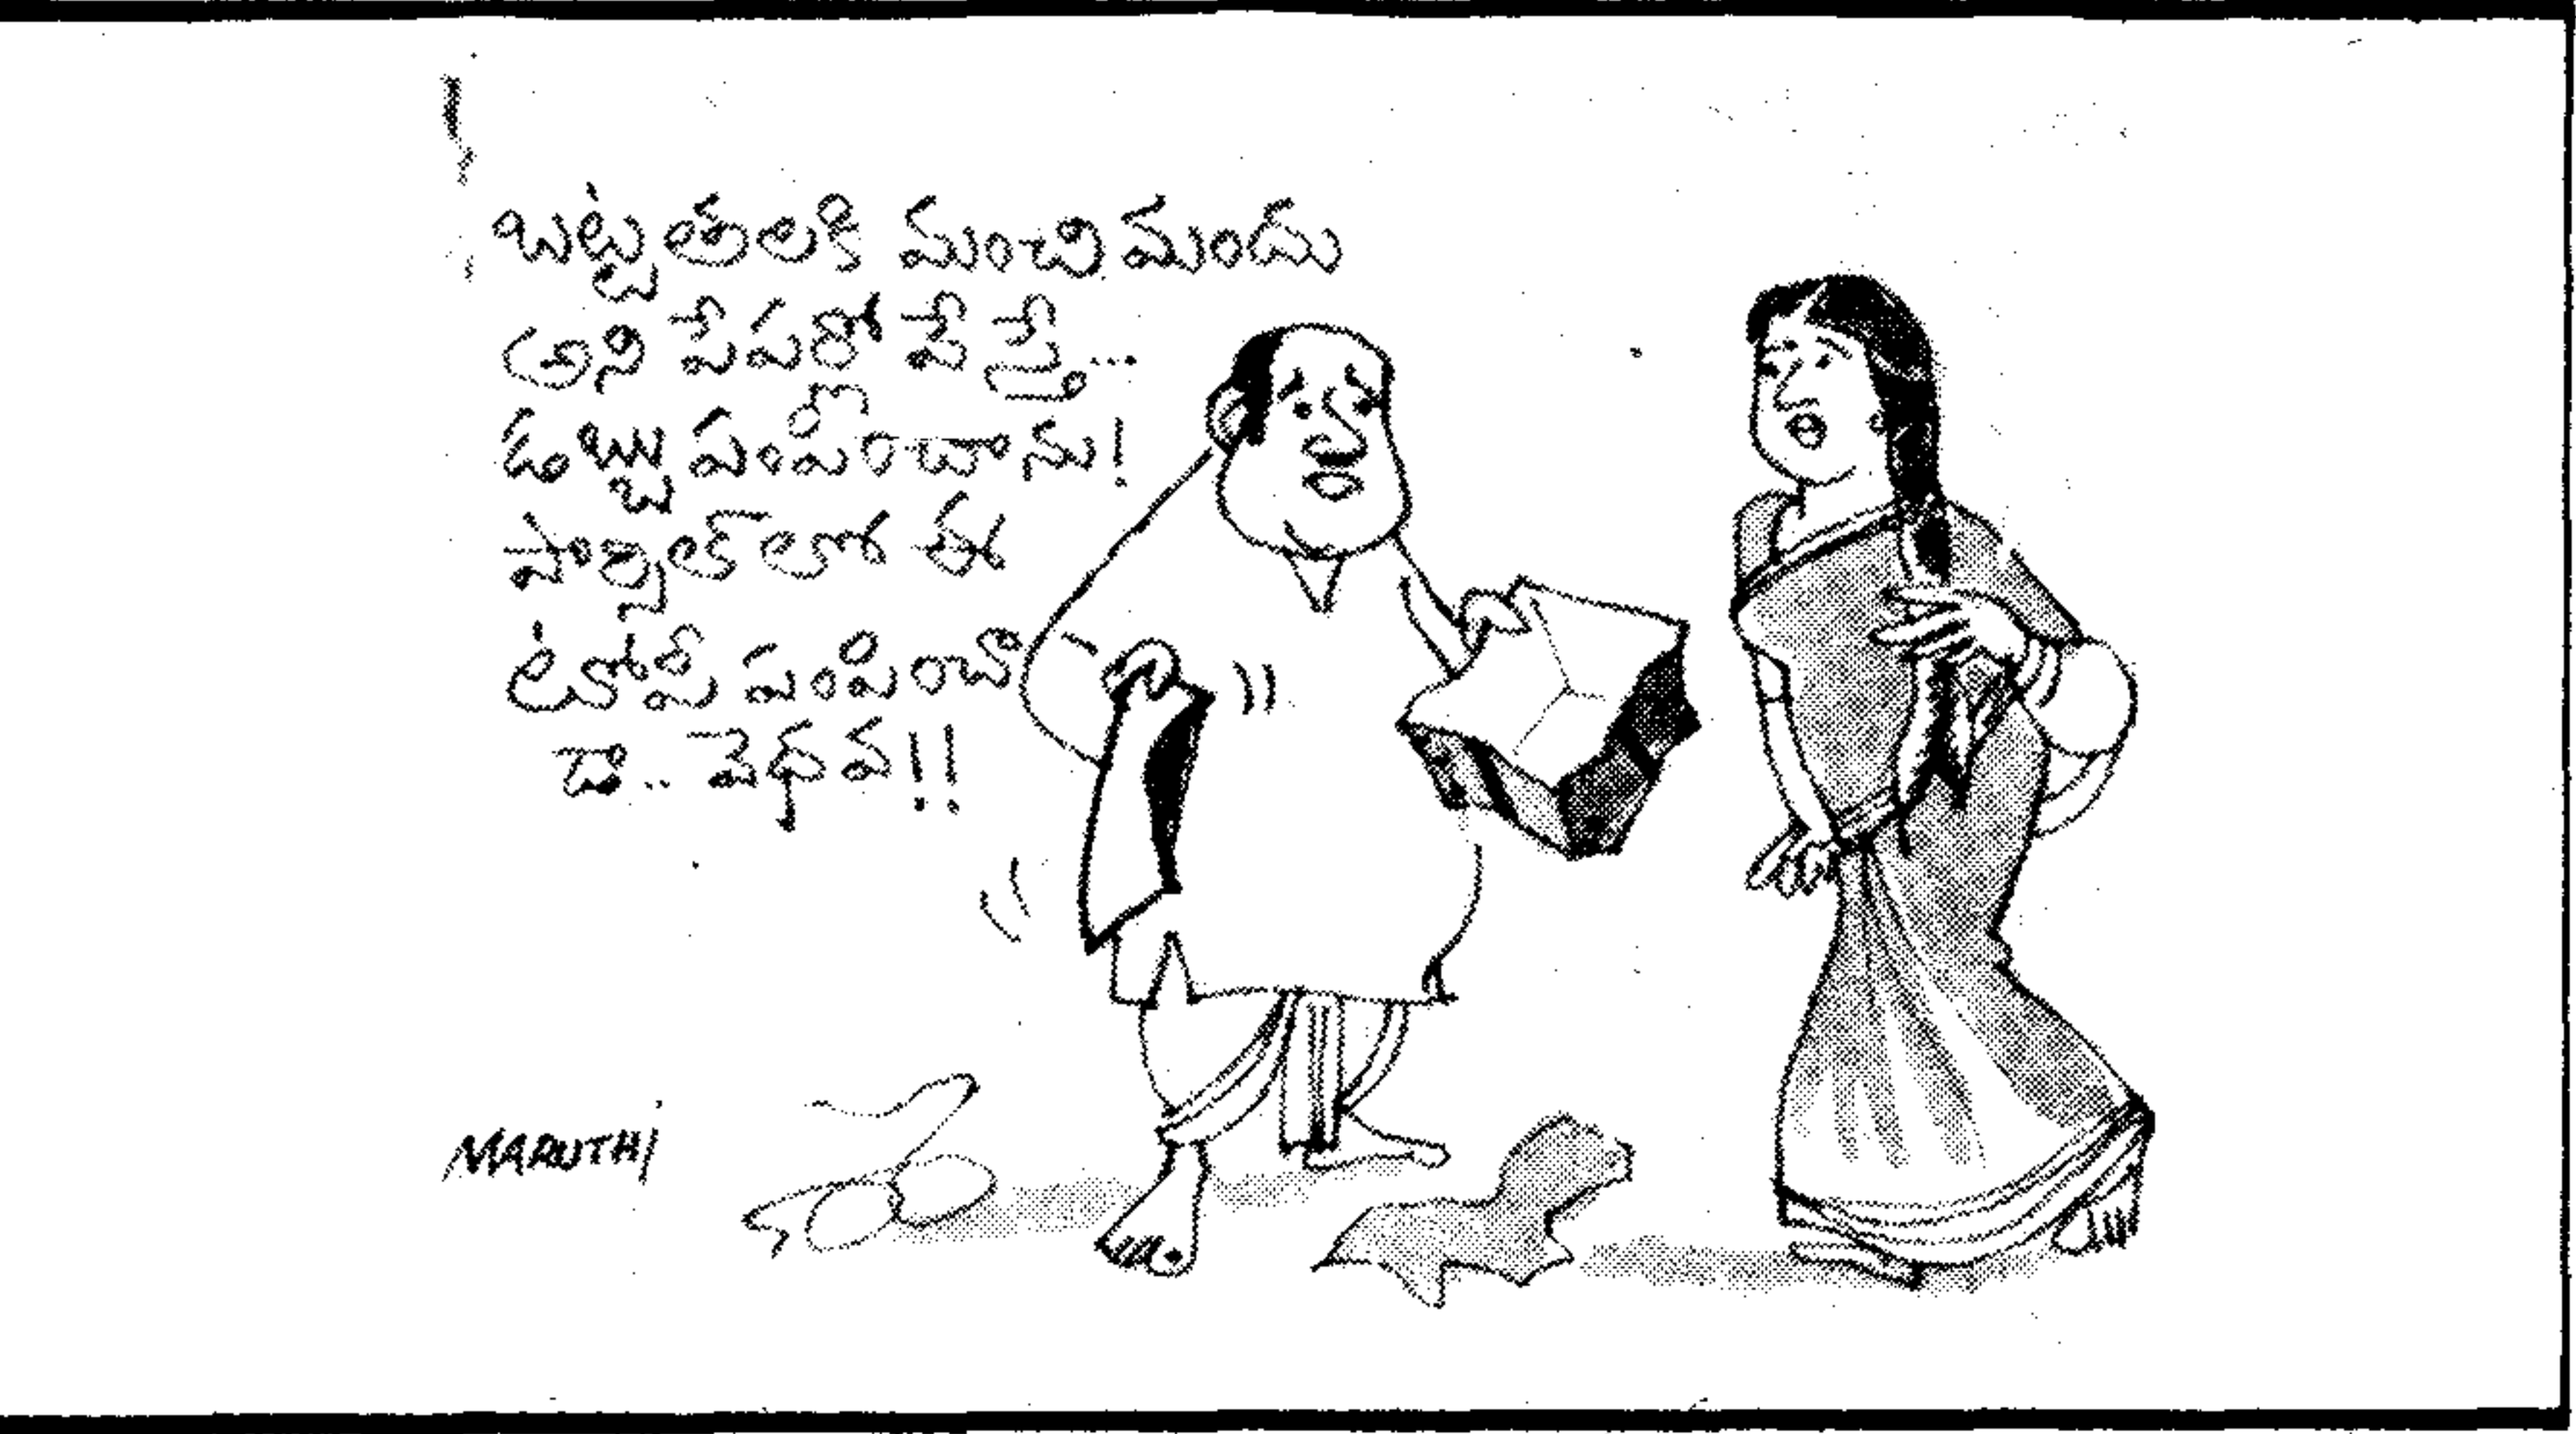 బట్టతలకి మంచి మందు
అని పేపర్లో వేస్తే...
డబ్బు పంపించాను!
పార్సిల్‌లో ఈ
టోపీ పంపించా
డా.. వెధవ!!
MARUTHI